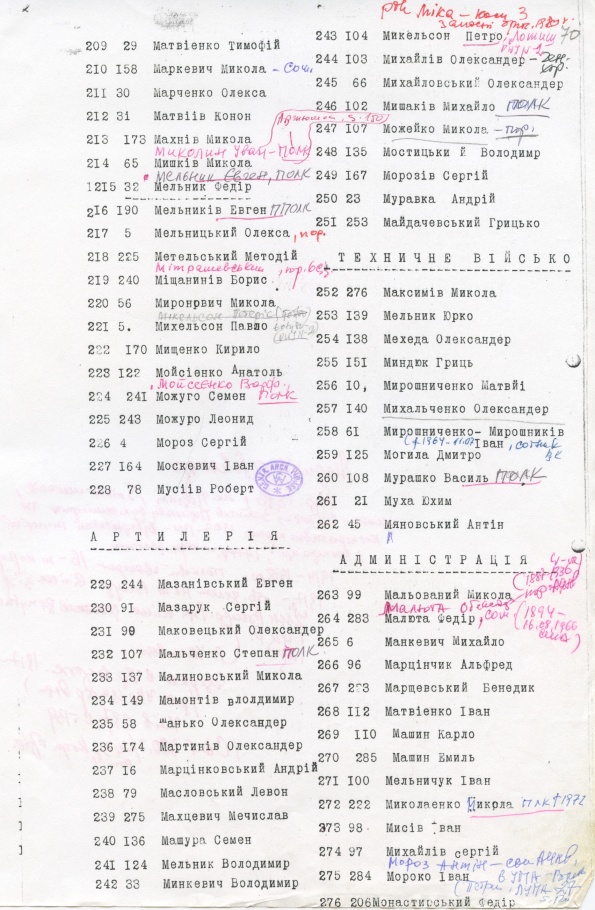 209 29 Матвієнко Тимофій
210 158 Маркевич Микола - сот.
211 30 Марченко Олекса
212 31 Матвіїв Конон
213 173 Махнів Микола
Миколин Іван - ПОЛК
214 65 Мишків Микола
Мельник Євген, ПОЛК
1215 32 Мельник Федір
216 190 Мельників Евген ППОЛК
217 5 Мельницький Олекса, пор.
218 225 Метельський Методій
Мітрашевський
219 240 Міщанинів Борис
220 56 Миронрвич Микола
221 5. Михельсон Павло
222 170 Мищенко Кирило
223 122 Мойсієнко Анатоль
Мойсєєнко
224 241 Можуго Семен ПОЛК
225 243 Можуро Леонид
226 4 Мороз Сергій
227 164 Москевич Іван
228 78 Мусіів Роберт
АРТИЛЕРІЯ
229 244 Мазанівський Евген
230 91 Мазарук Сергій
231 90 Маковецький Олександер
232 107 Мальченко Степан ПОЛК
233 137 Малиновський Микола
234 149 Мамонтів влолдимир
235 58 Манько Олександер
236 174 Мартинів Олександер
237 16 Марцінковський Андрій
238 79 Масловський Левон
239 275 Махцевич Мечислав
240 136 Машура Семен
241 124 Мельник Володимир
242 33 Минкевич Володимир
243 104 Микельсон Петро
70
244 103 Михайлів Олександер
245 66 Михайловський Олександер
246 102 Мишаків Михайло ПОЛК
247 107 Можейко Микола - пор.
248 135 Мостицьки й Володимр
249 167 Морозів Сергій
250 23 Муравка Андрій
251 253 Майдачевський Грицько
ТЕХНИЧНЕ ВІЙСЬКО
252 276 Максимів Микола
253 139 Мельник Юрко
254 138 Мехеда Олександер
255 151 Миндюк Гриць
256 10, Мирошниченко Матвйі
257 140 Михальченко Олександер
258 61 Мирошниченко- Мирошників
Іван, сотник
259 125 Могила Дмитро
260 108 Мурашко Василь ПОЛК
261 21 Муха Юхим
262 45 Мяновський Антін
АДМИНІСТРАЦІЯ
263 99 Мальований Микола
Малюта
264 283 Малюта Федір, сот
(1894-
16.08.1966
265 6 Манкевич Михайло
266 96 Марцінчик Альфред
267 223 Марщевський Бенедик
268 112 Матвієнко Іван
269 110 Машин Карло
270 285 Машин Емиль
271 100 Мельничук Іван
272 222 Миколаенко Микрла ППК †1972
273 98 Мисів Іван
274 97 Михайлів сергій
Мороз Антін - сот
275 284 Мороко Іван
276 206 Монастирський Федір